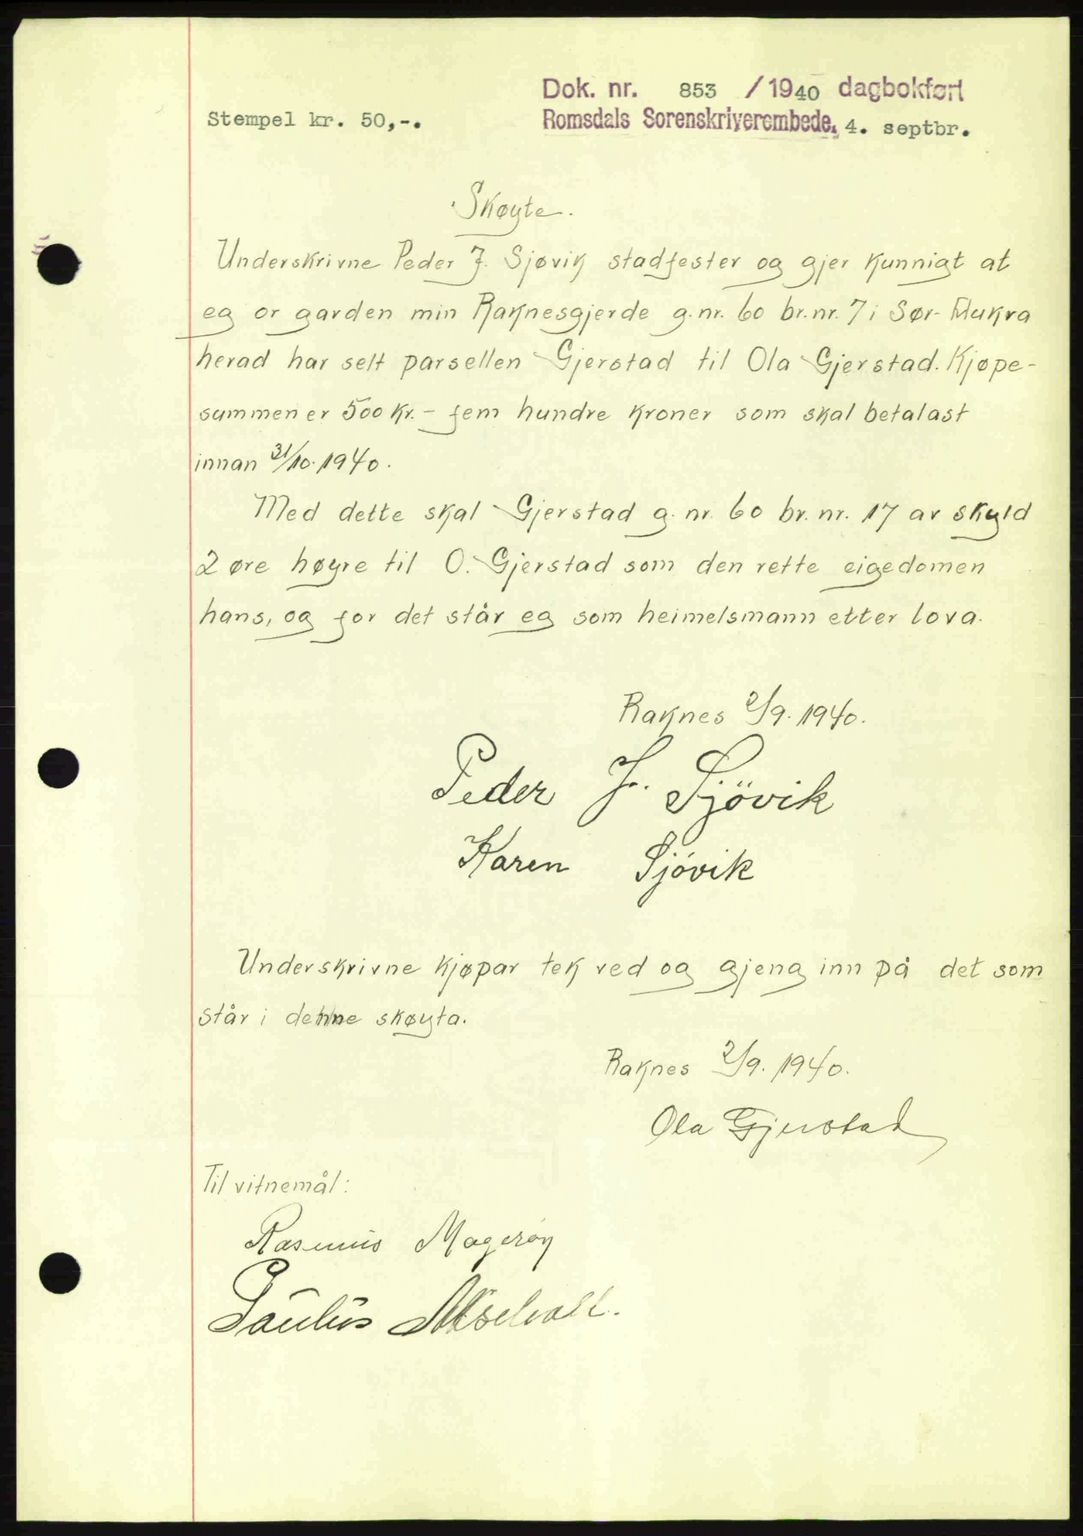 Dok. nr. 853 / 1940 dagbokført
Stempel kr. 50,-.
Romsdals Sorenskriverembede, 4. septbr.
Skøyte.
Underskrivne Peder J. Sjøvik stadfester og gjer kunnigt at
eg or garden min Raknesgjerde g.nr. 60 br.nr. 7 i Sør-Aukra
herad har selt parsellen Gjerstad til Ola Gjerstad. Kjøpe-
summen er 500 kr. - fem hundre kroner som skal betalast
innan 31/10. 1940.
Med dette skal Gjerstad g. nr. 60 br. nr. 17 av skyld
2 øre høyre til O. Gjerstad som den rette eigedomen
hans, og for det står eg som heimelsmann etter lova.
Raknes 2/9. 1940.
Peder J. Sjövik
Karen Sjövik
Underskrivne kjøpar tek ved og gjeng inn på det som
står i denne skøyta.
Raknes 2/9. 1940.
Ola Gjerstad
Til vitnemål:
Rasmus Magerøy
Paulus